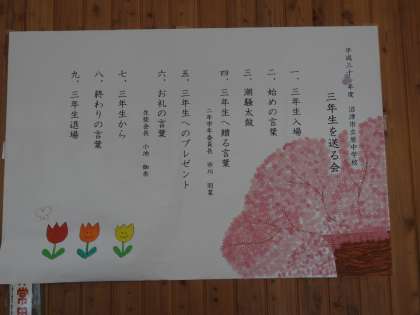 平成三十年度 沼津市立原中学校
三年生を送る会
一、三年生入場
二、始めの言葉
三、潮騒太鼓
四、三年生へ贈る言葉
二年学年委員長
五、三年生へのプレゼント
六、お礼の言葉
生徒会長 小池
七、三年生から
八、終わりの言葉
九、三年生退場